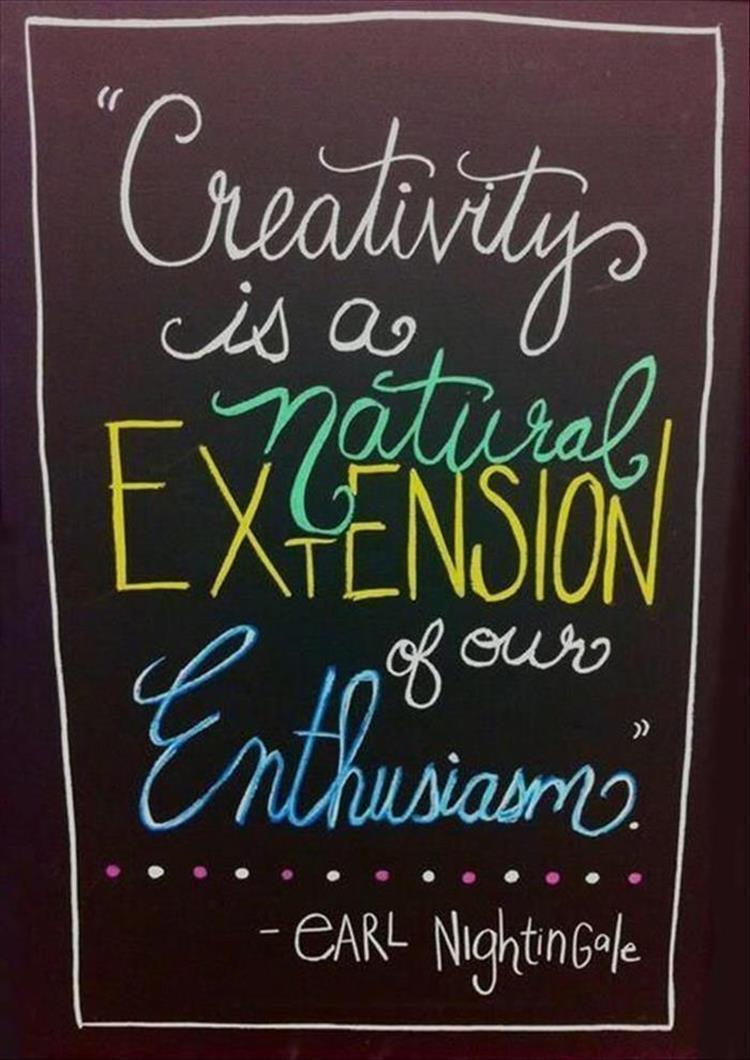 “Creativity
is a
natural
EXTENSION
of our
Enthusiasm.”
- EARL NIghtinGale